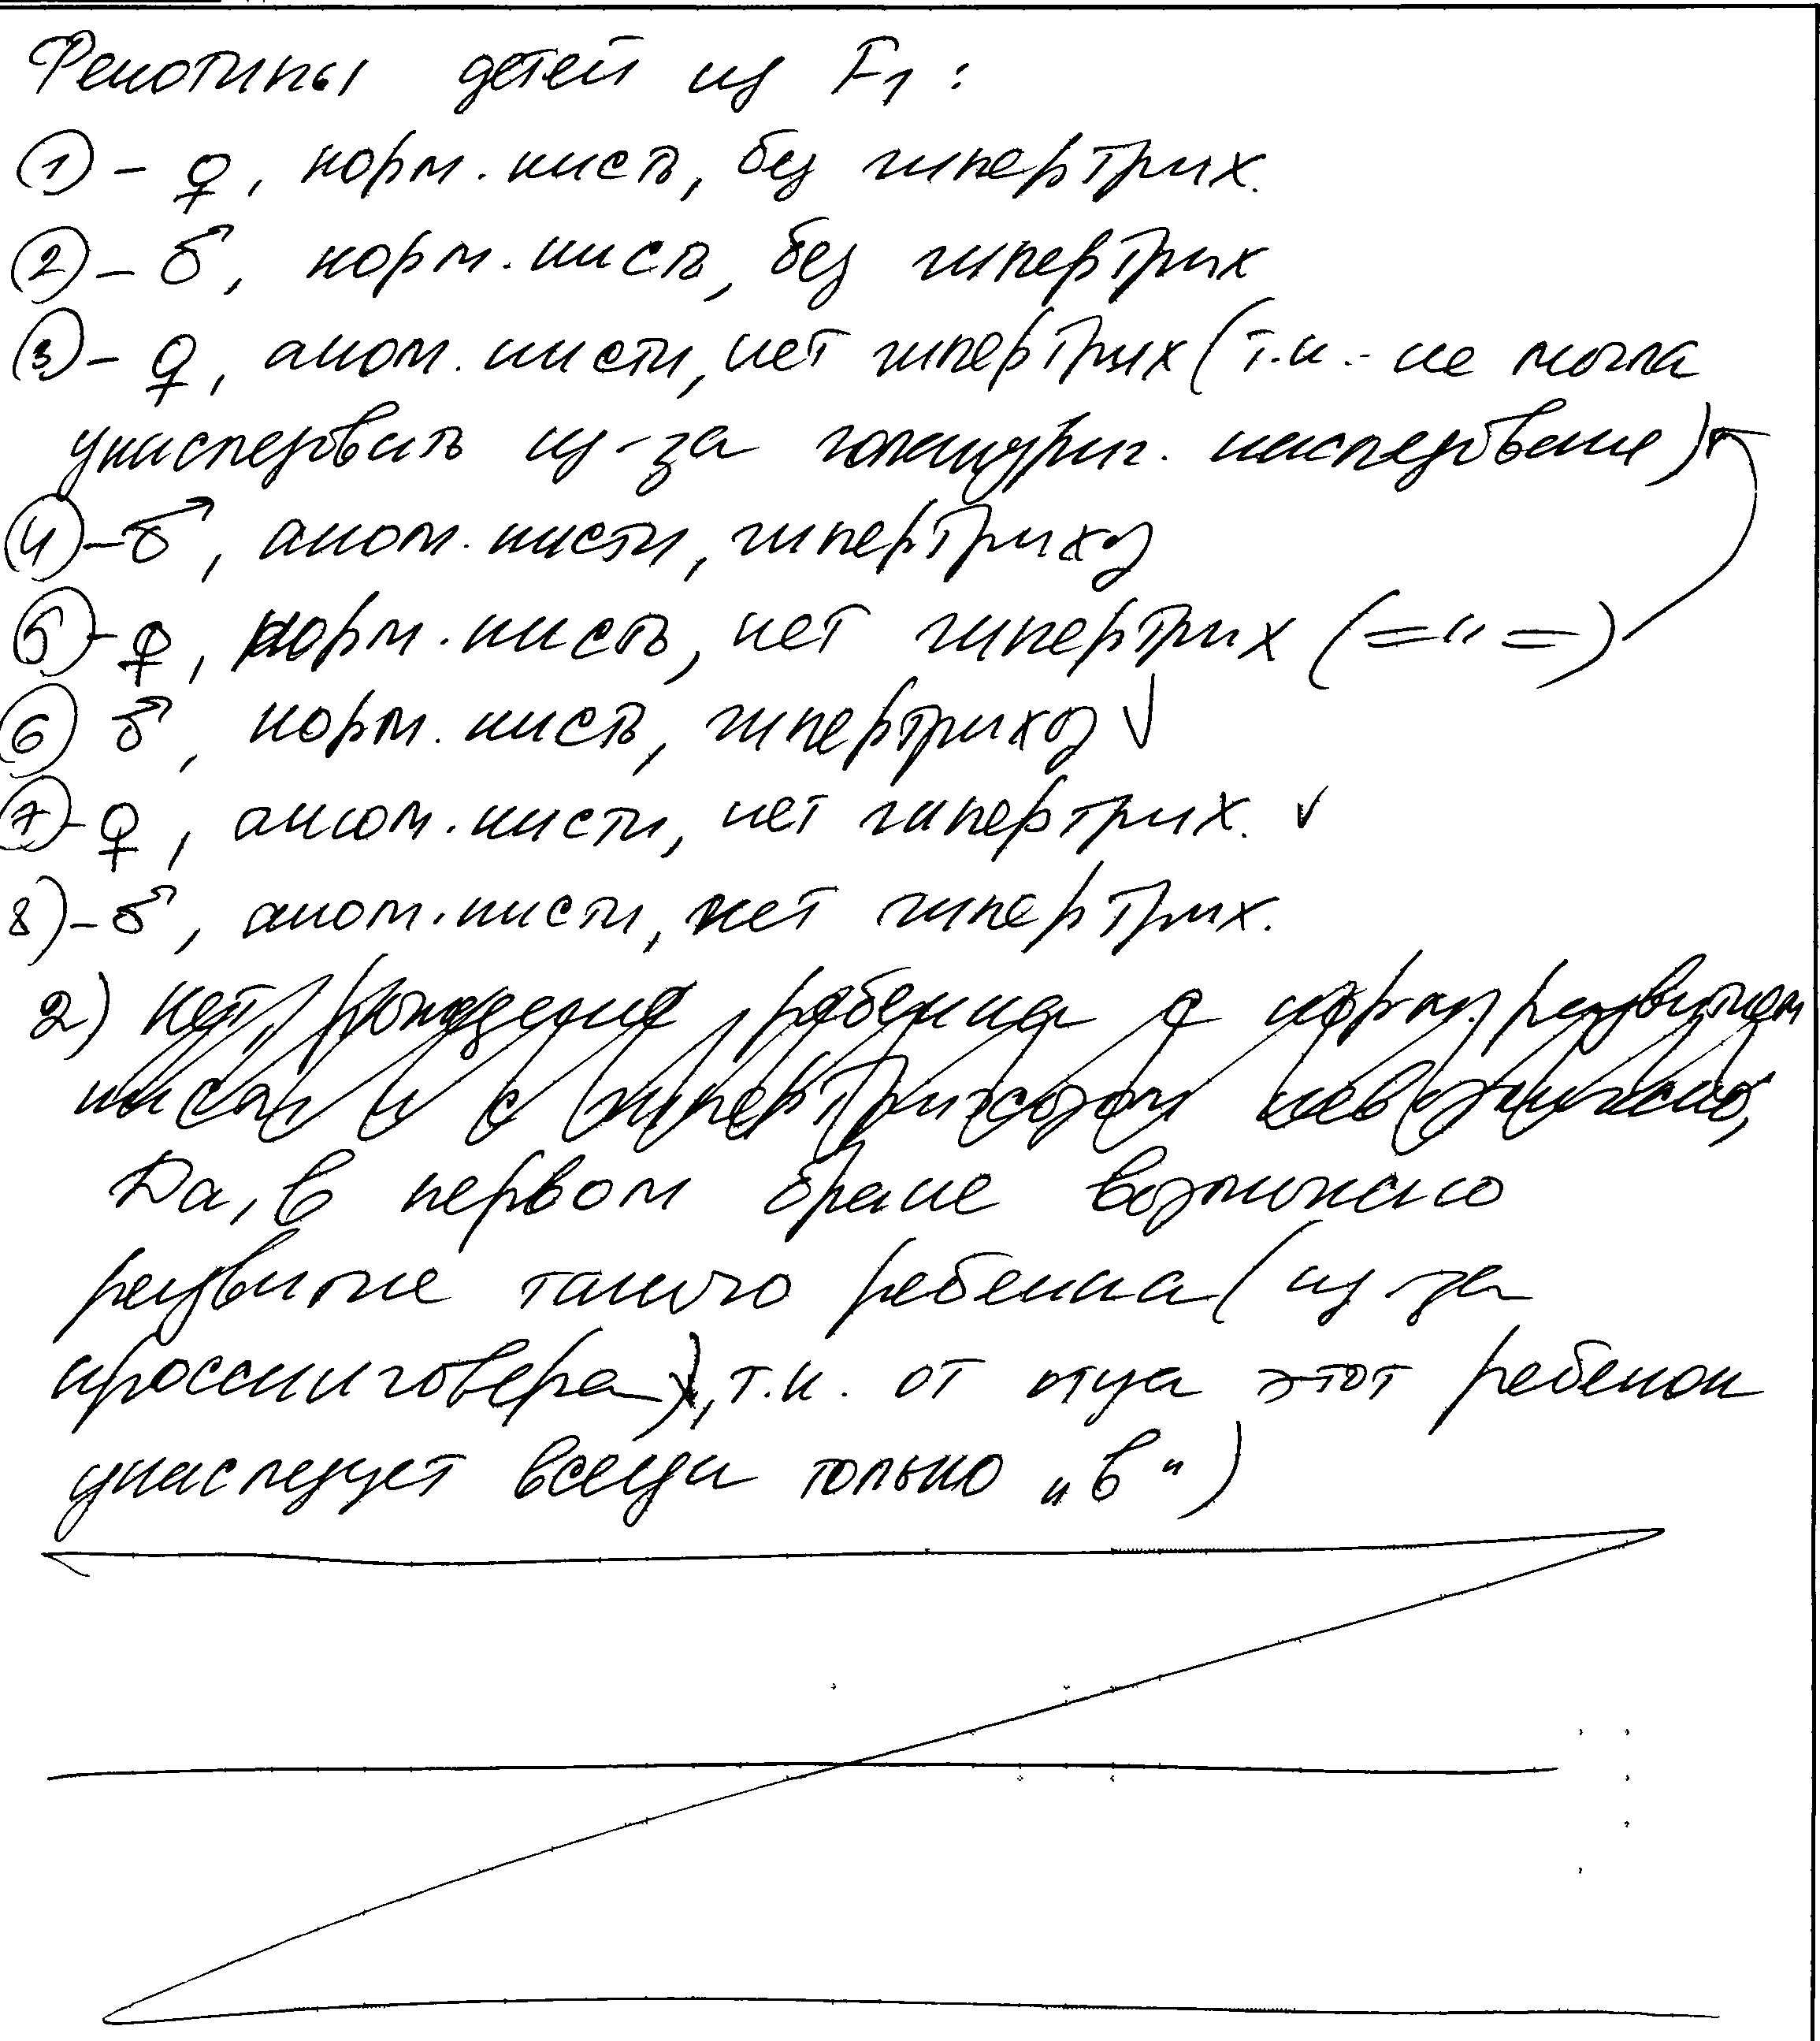 Фенотипы детей из F1:
① - ♀, норм. кисть, без гипертрих.
② - ♂, норм. кисть, без гипертрих
③ - ♀, аном. кисти, нет гипертрих (т.к. - не могла
унаследовать из-за голандрич. наследование)
④ - ♂, аном. кисти, гипертрихоз
⑤ - ♀, норм. кисть, нет гипертрих (=〃=)
⑥ ♂, норм. кисть, гипертрихоз ✓
⑦ - ♀, аном. кисти, нет гипертрих. ✓
8) - ♂, аном. кисти, нет гипертрих.
2) нет, рождение ребенка с норм. развитием
кисти и с гипертрихозом невозможно,
Да, в первом браке возможно
развитие такого ребенка (из-за
кроссинговера), т.к. от отца этот ребенок
унаследует всегда только „в“)